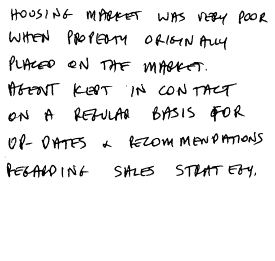 HOUSING MARKET WAS VERY POOR
WHEN PROPERTY ORIGINALLY
PLACED ON THE MARKET.
AGENT KEPT IN CONTACT
ON A REGULAR BASIS FOR
UP-DATES & RECOMMENDATIONS
REGARDING SALES STRATEGY.